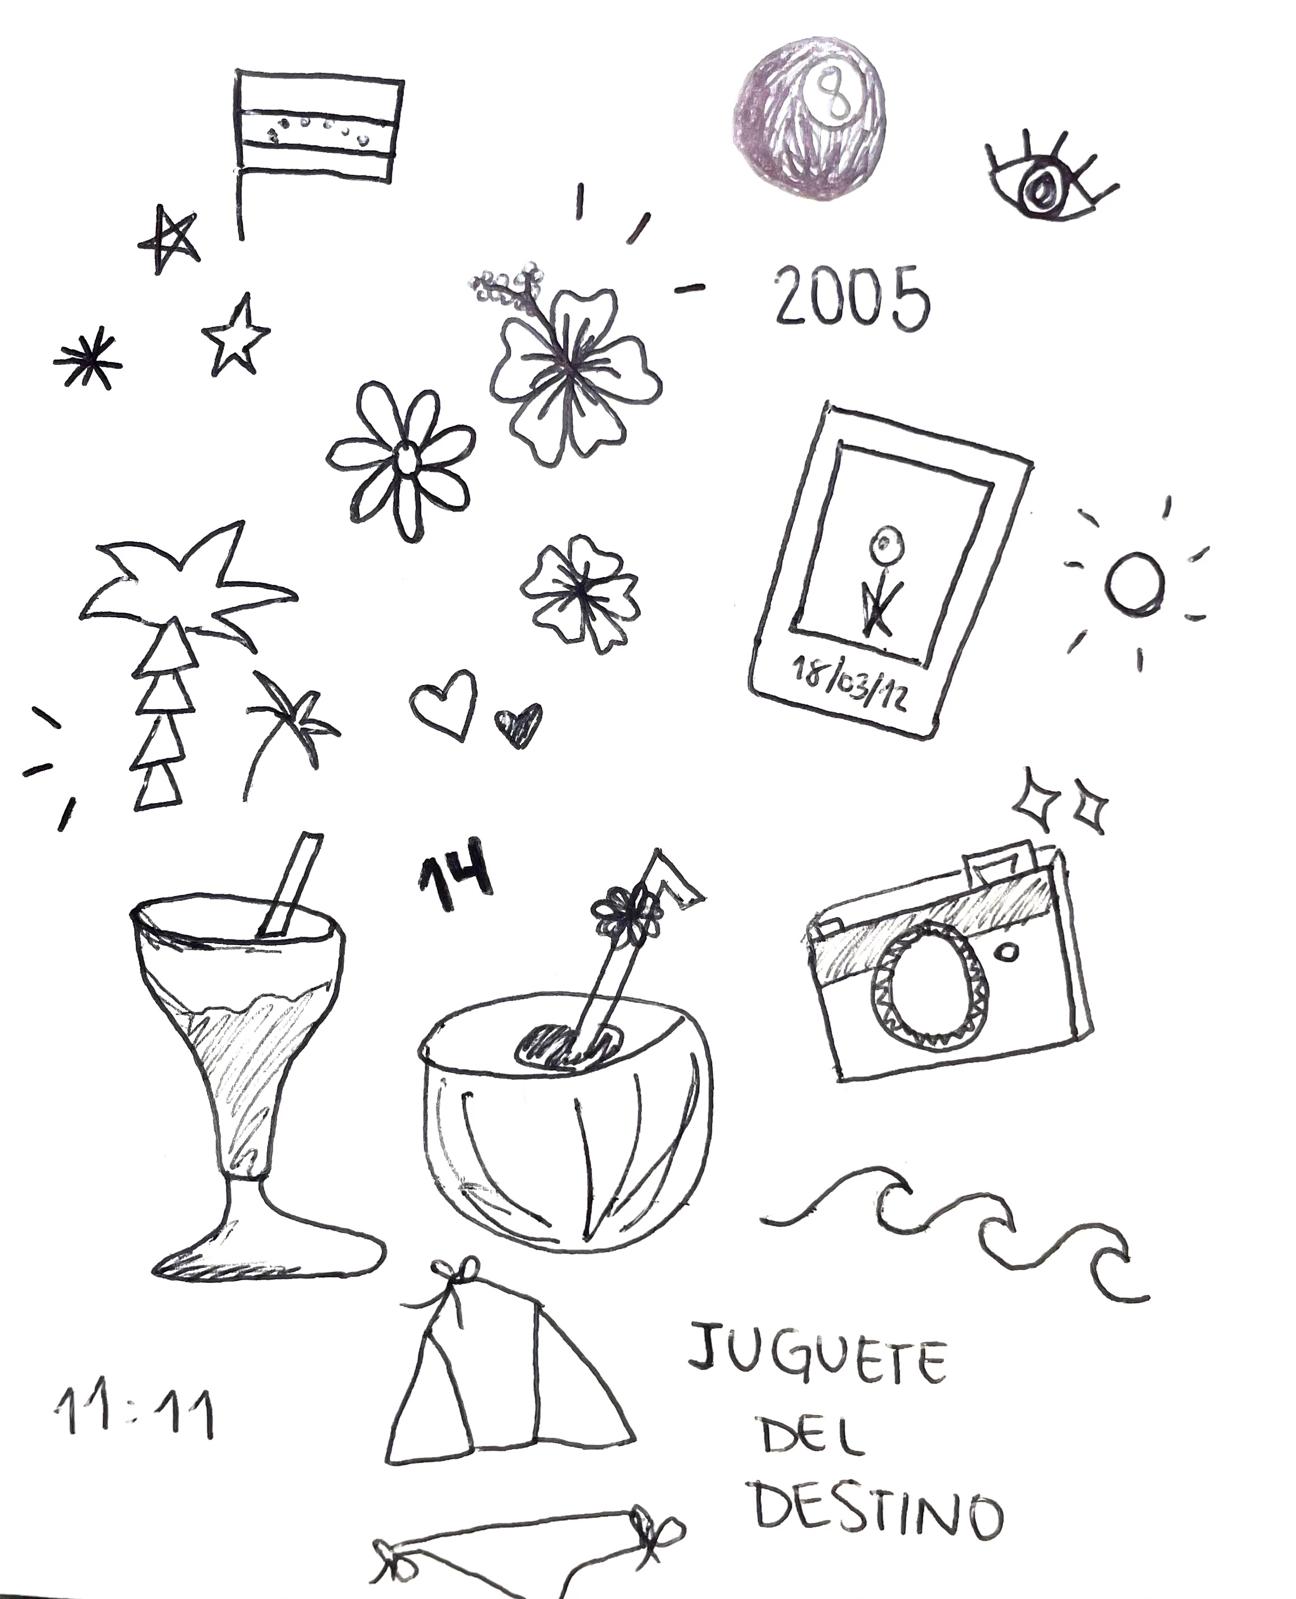 8
2005
18/03/12
14
11:11
JUGUETE
DEL
DESTINO